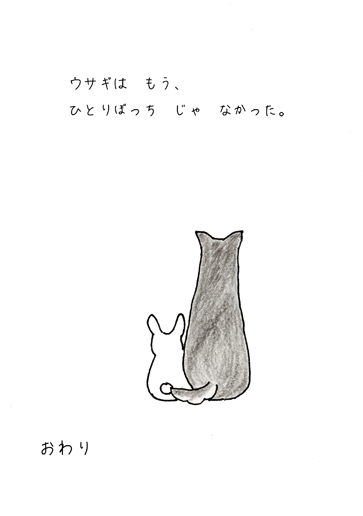 ウサギは もう、
ひとりぼっち じゃ なかった。
おわり